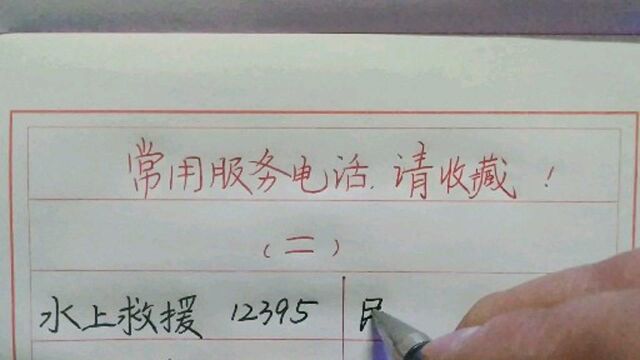 常用服务电话,请收藏!
(二)
水上救援 12395